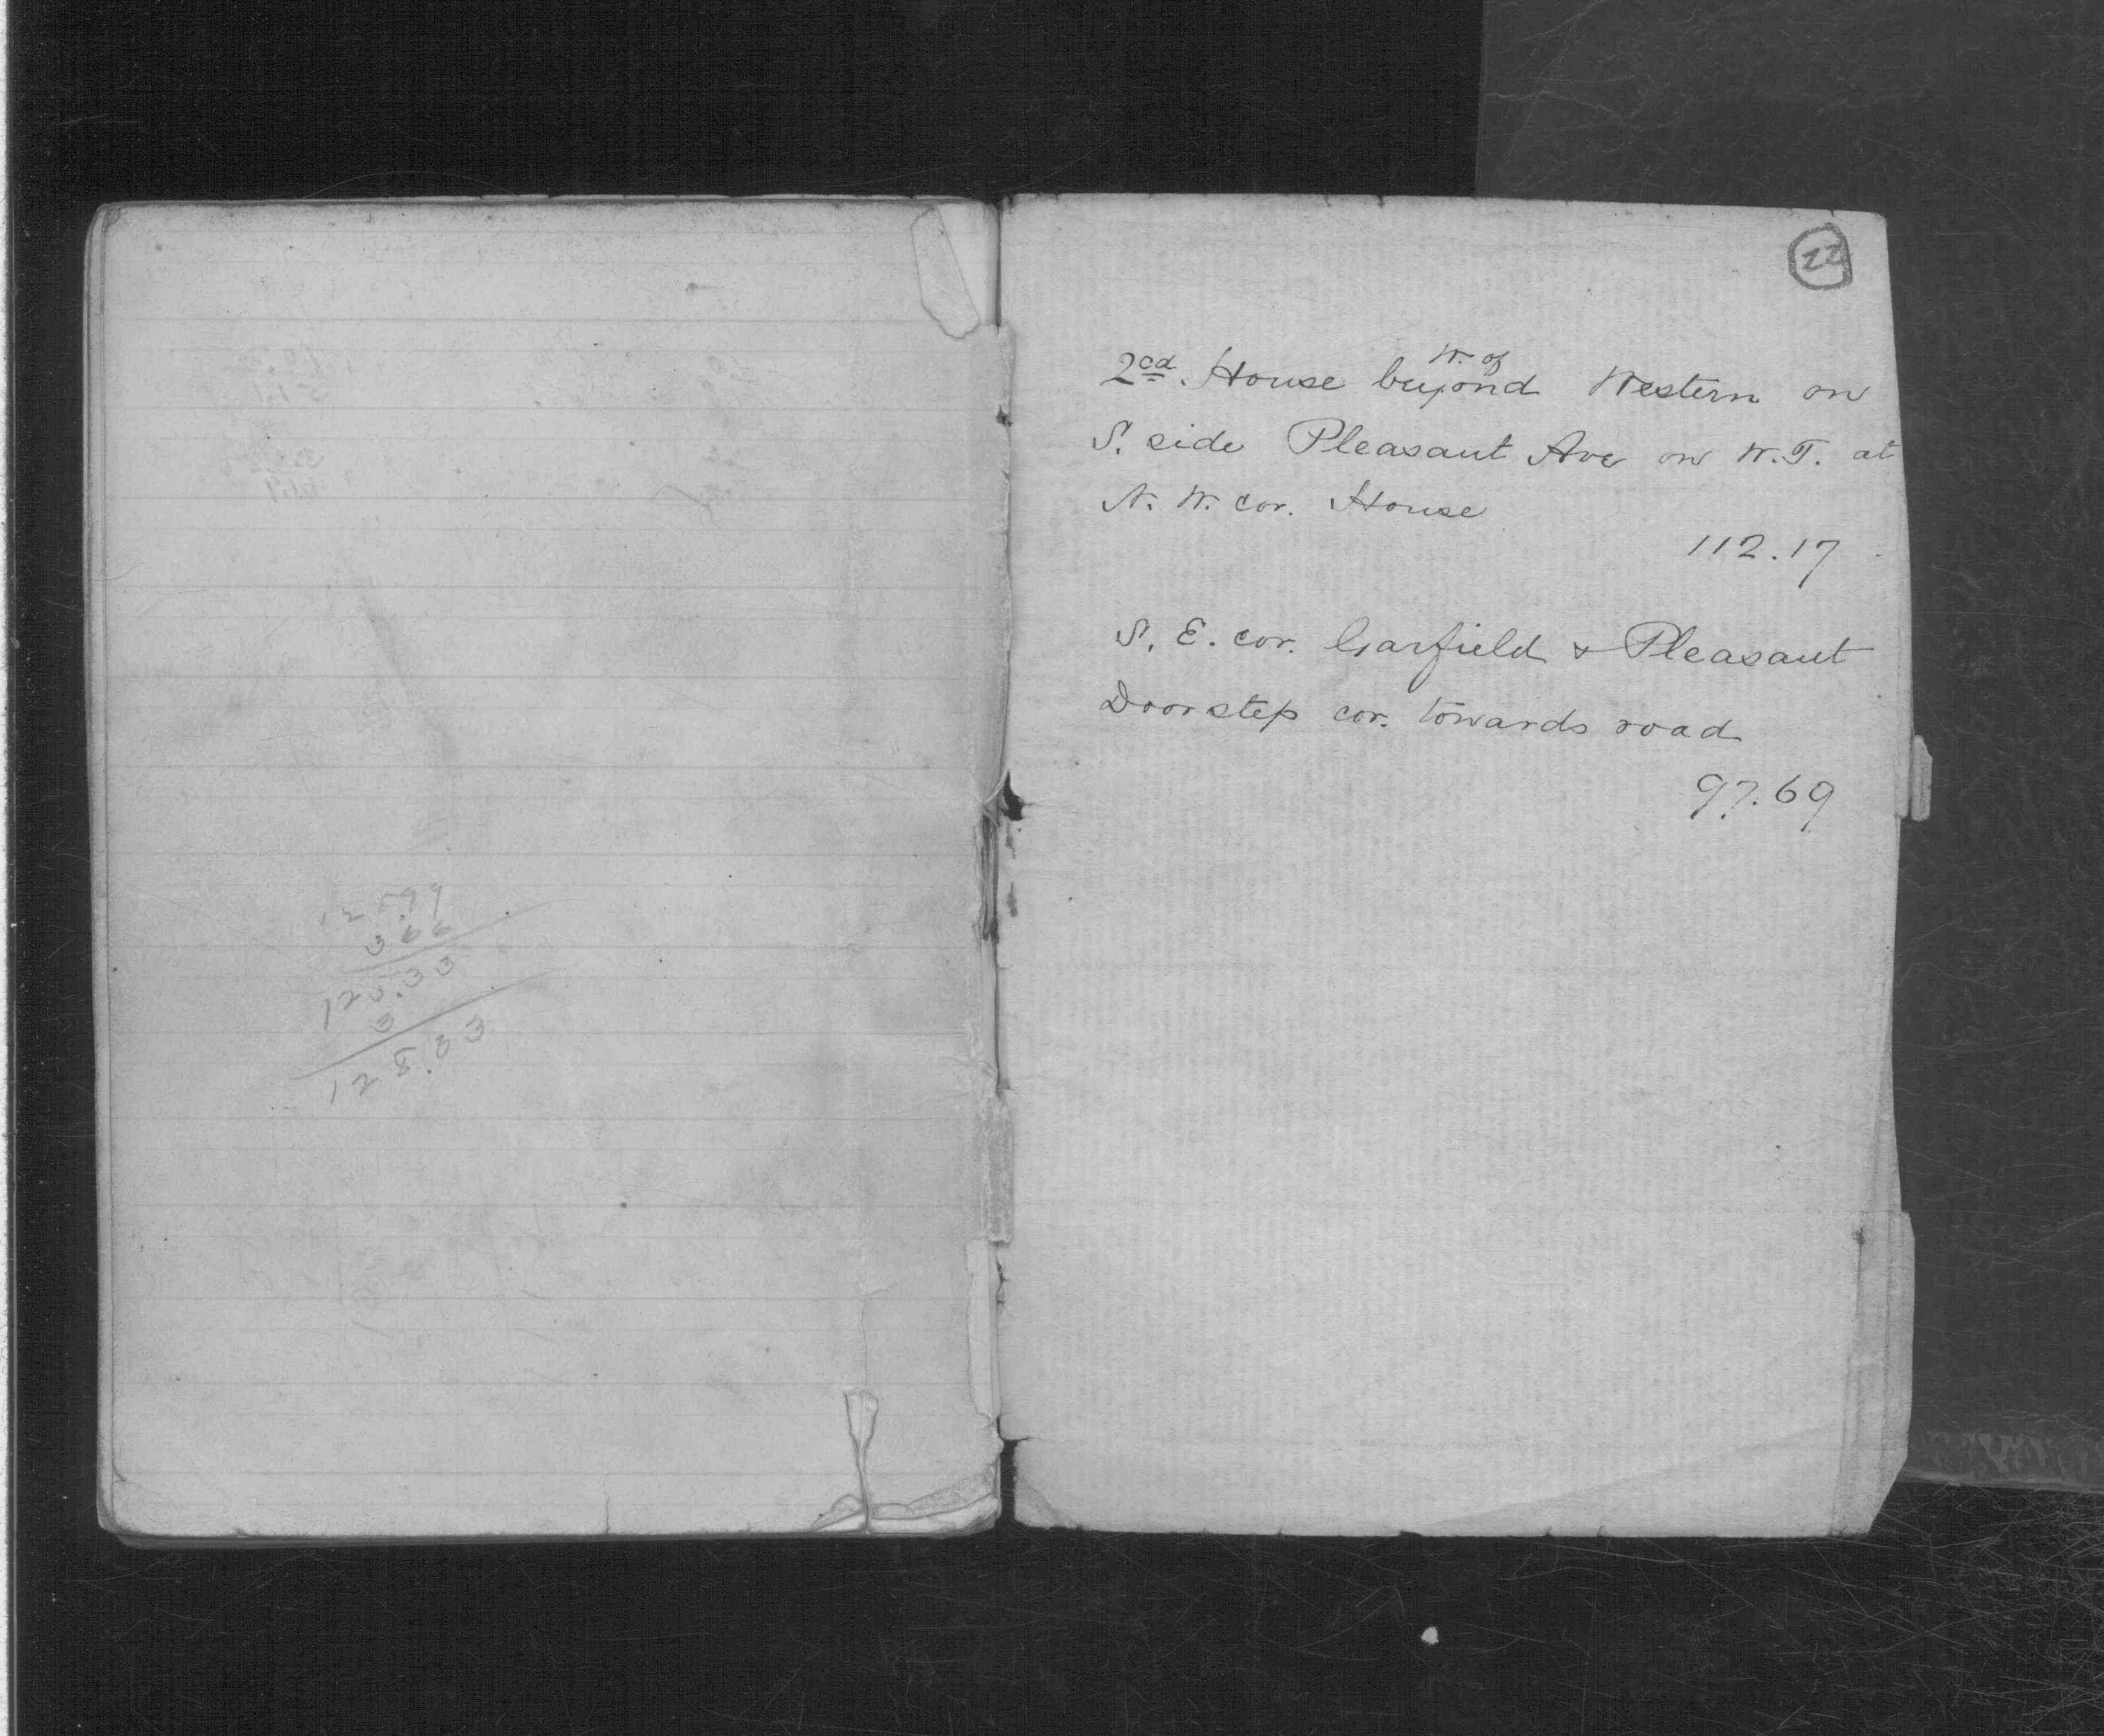 128.99
3.66
125.33
3
128.33
22
W. of
2cd. House beyond Western on
S. side Pleasant Ave on W.T. at
N. W. cor. House
112.17
S. E. cor. Garfield & Pleasant
Doorstep cor. towards road
97.69